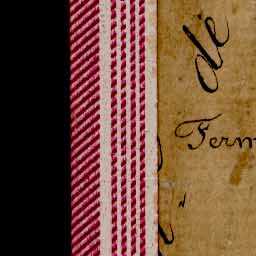 de
Ferm